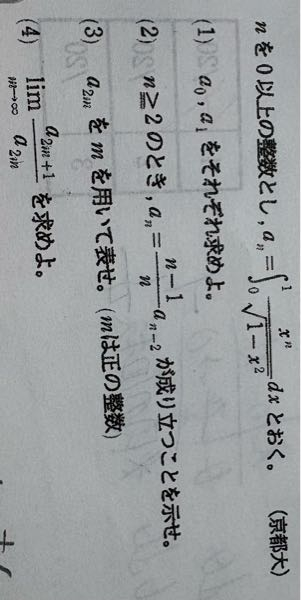 nを0以上の整数とし, a_n = ∫_0^1 x^n/√(1−x^2) dx とおく。 (京都大)
(1) a_0, a_1 をそれぞれ求めよ。
(2) n≧2 のとき, a_n = (n−1)/n a_{n−2} が成り立つことを示せ。
(3) a_{2m} を m を用いて表せ。(m は正の整数)
(4) lim_{m→∞} a_{2m+1}/a_{2m} を求めよ。